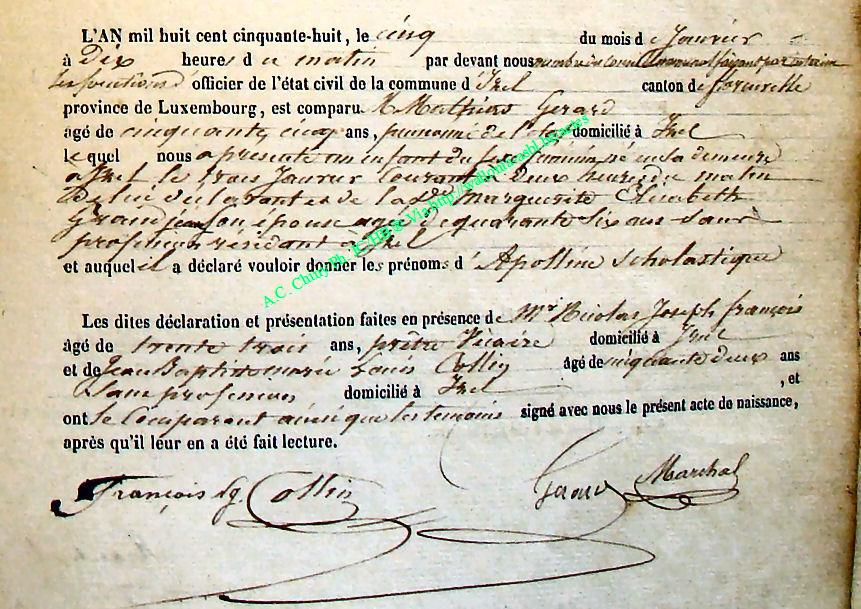 L'AN mil huit cent cinquante-huit, le cinq du mois de Janvier
à Dix heures du matin par devant nous membre du conseil Communal faisant par interim
les fonctions d'officier de l'état civil de la commune d'Izel canton de florenville
province de Luxembourg, est comparu M. Mathias Gerard
agé de cinquante, cinq ans, domicilié à Izel
lequel nous a présenté un enfant du sexe féminin, né en sa demeure
à Izel le trois Janvier Courant à deux heures du matin
De lui déclarant et de la de Marguerite Elisabeth
Grandjean son épouse agée de quarante six ans sans
profession résidant à Izel
et auquel il a déclaré vouloir donner les prénoms d'Apolline Scholastique
Les dites déclaration et présentation faites en présence de Mr Nicolas Joseph françois
âgé de trente trois ans, prêtre Vicaire domicilié à Izel
et de Jean Baptiste marie Louis Collin âgé de cinquante deux ans
Sans profession domicilié à Izel , et
ont le Comparant ainsi que les temoins signé avec nous le présent acte de naissance,
après qu'il leur en a été fait lecture.
François Collin Gerard Marchal
A.C. Chiny Ph. JC Hit & Via http://wallonica